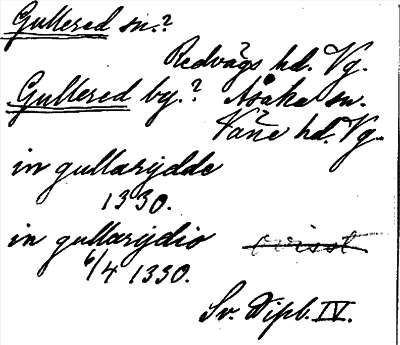 Gullered sn.?
Redvägs hd. Vg.
Gullered by.? Åsaka sn.
Väne hd. Vg.
in gullarydde
1330.
in gullarydio
ovisst
6/4 1330.
Sv. Dipl. IV.